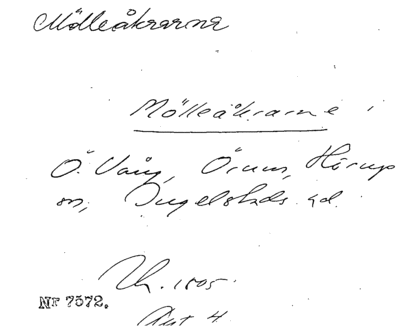 Mölleåkrarna
Mölleåkrarne i
Ö. Vång, Örum, Hörups
sn, Ingelstads hd.
1805.
Nr 7572.
Akt 4.